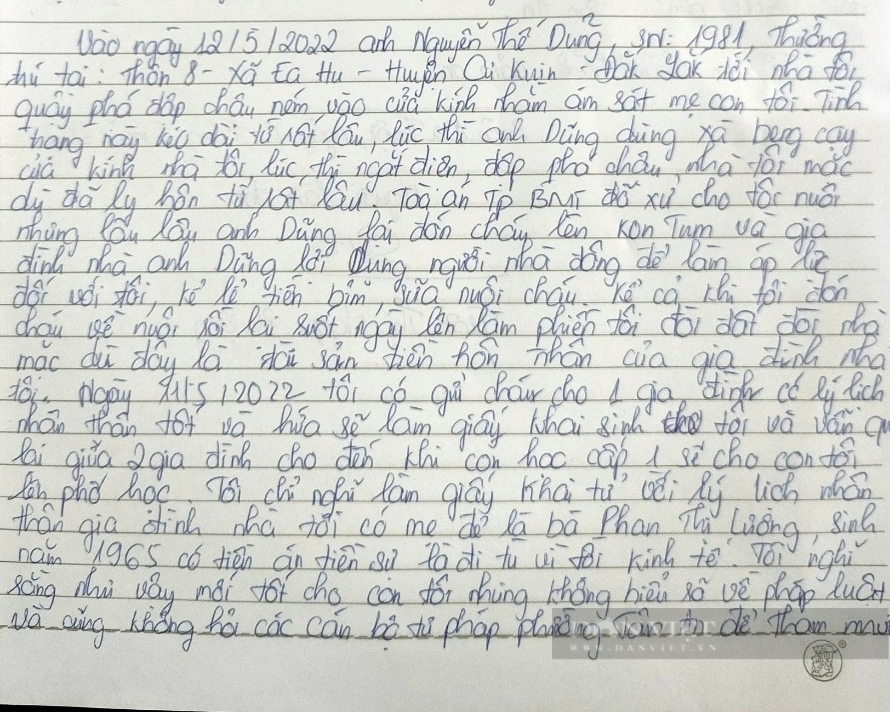 Vào ngày 12/5/2022 anh Nguyễn Thế Dũng, SN: 1981, Thường
trú tại: Thôn 8 - Xã Ea Hu - Huyện Cư Kuin - Đắk Lắk tới nhà tôi
quấy phá đập chậu ném vào cửa kính nhằm ám sát mẹ con tôi. Tình
trạng này kéo dài từ rất lâu, lúc thì anh Dũng dùng xà beng cạy
cửa kính nhà tôi, lúc thì ngắt điện, đập phá chậu nhà tôi mặc
dù đã ly hôn từ rất lâu. Toà án Tp BMT đã xử cho tôi nuôi
nhưng lâu lâu anh Dũng lại đón cháu lên Kon Tum và gia
đình nhà anh Dũng lợi dụng người nhà đông để làm áp lực
đối với tôi, kể lể tiền bỉm, sữa nuôi cháu. Kể cả khi tôi đón
cháu về nuôi rồi lại suốt ngày lên làm phiền tôi đòi đất đòi nhà
mặc dù đây là tài sản tiền hôn nhân của gia đình nhà
tôi. Ngày 11/5/2022 tôi có gửi cháu cho 1 gia đình có lý lịch
nhân thân tốt và hứa sẽ làm giấy khai sinh cho tôi và vẫn qu
lại giữa 2 gia đình cho đến khi con học cấp 1 sẽ cho con tôi
lên phố học. Tôi chỉ nghĩ làm giấy khai tử với lý lịch nhân
thân gia đình nhà tôi có mẹ đẻ là bà Phan Thị Lường, sinh
năm 1965 có tiền án tiền sự là đi tù vì tội kinh tế. Tôi nghĩ
rằng như vậy mới tốt cho con tôi nhưng không hiểu rõ về pháp luật
và cũng không hỏi các cán bộ tư pháp phường Tân để tham mưu
DANVIET
WWW.DANVIET.VN